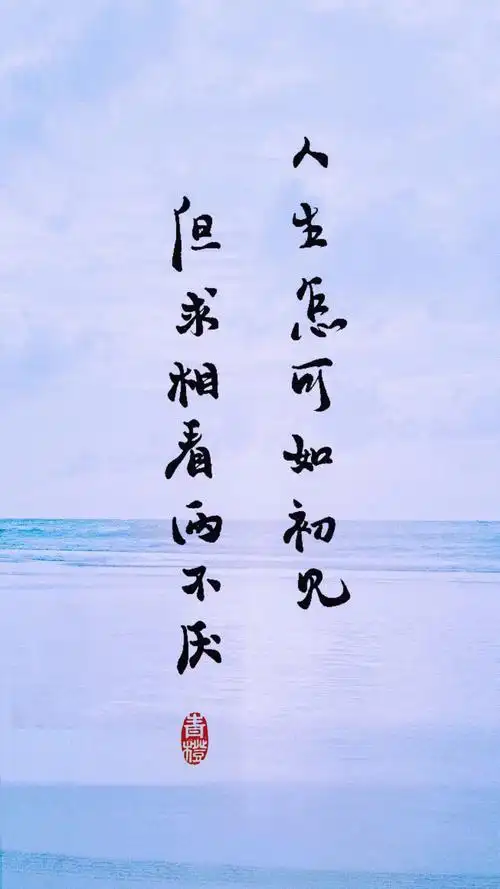 人生怎可如初见
但求相看两不厌
青橙